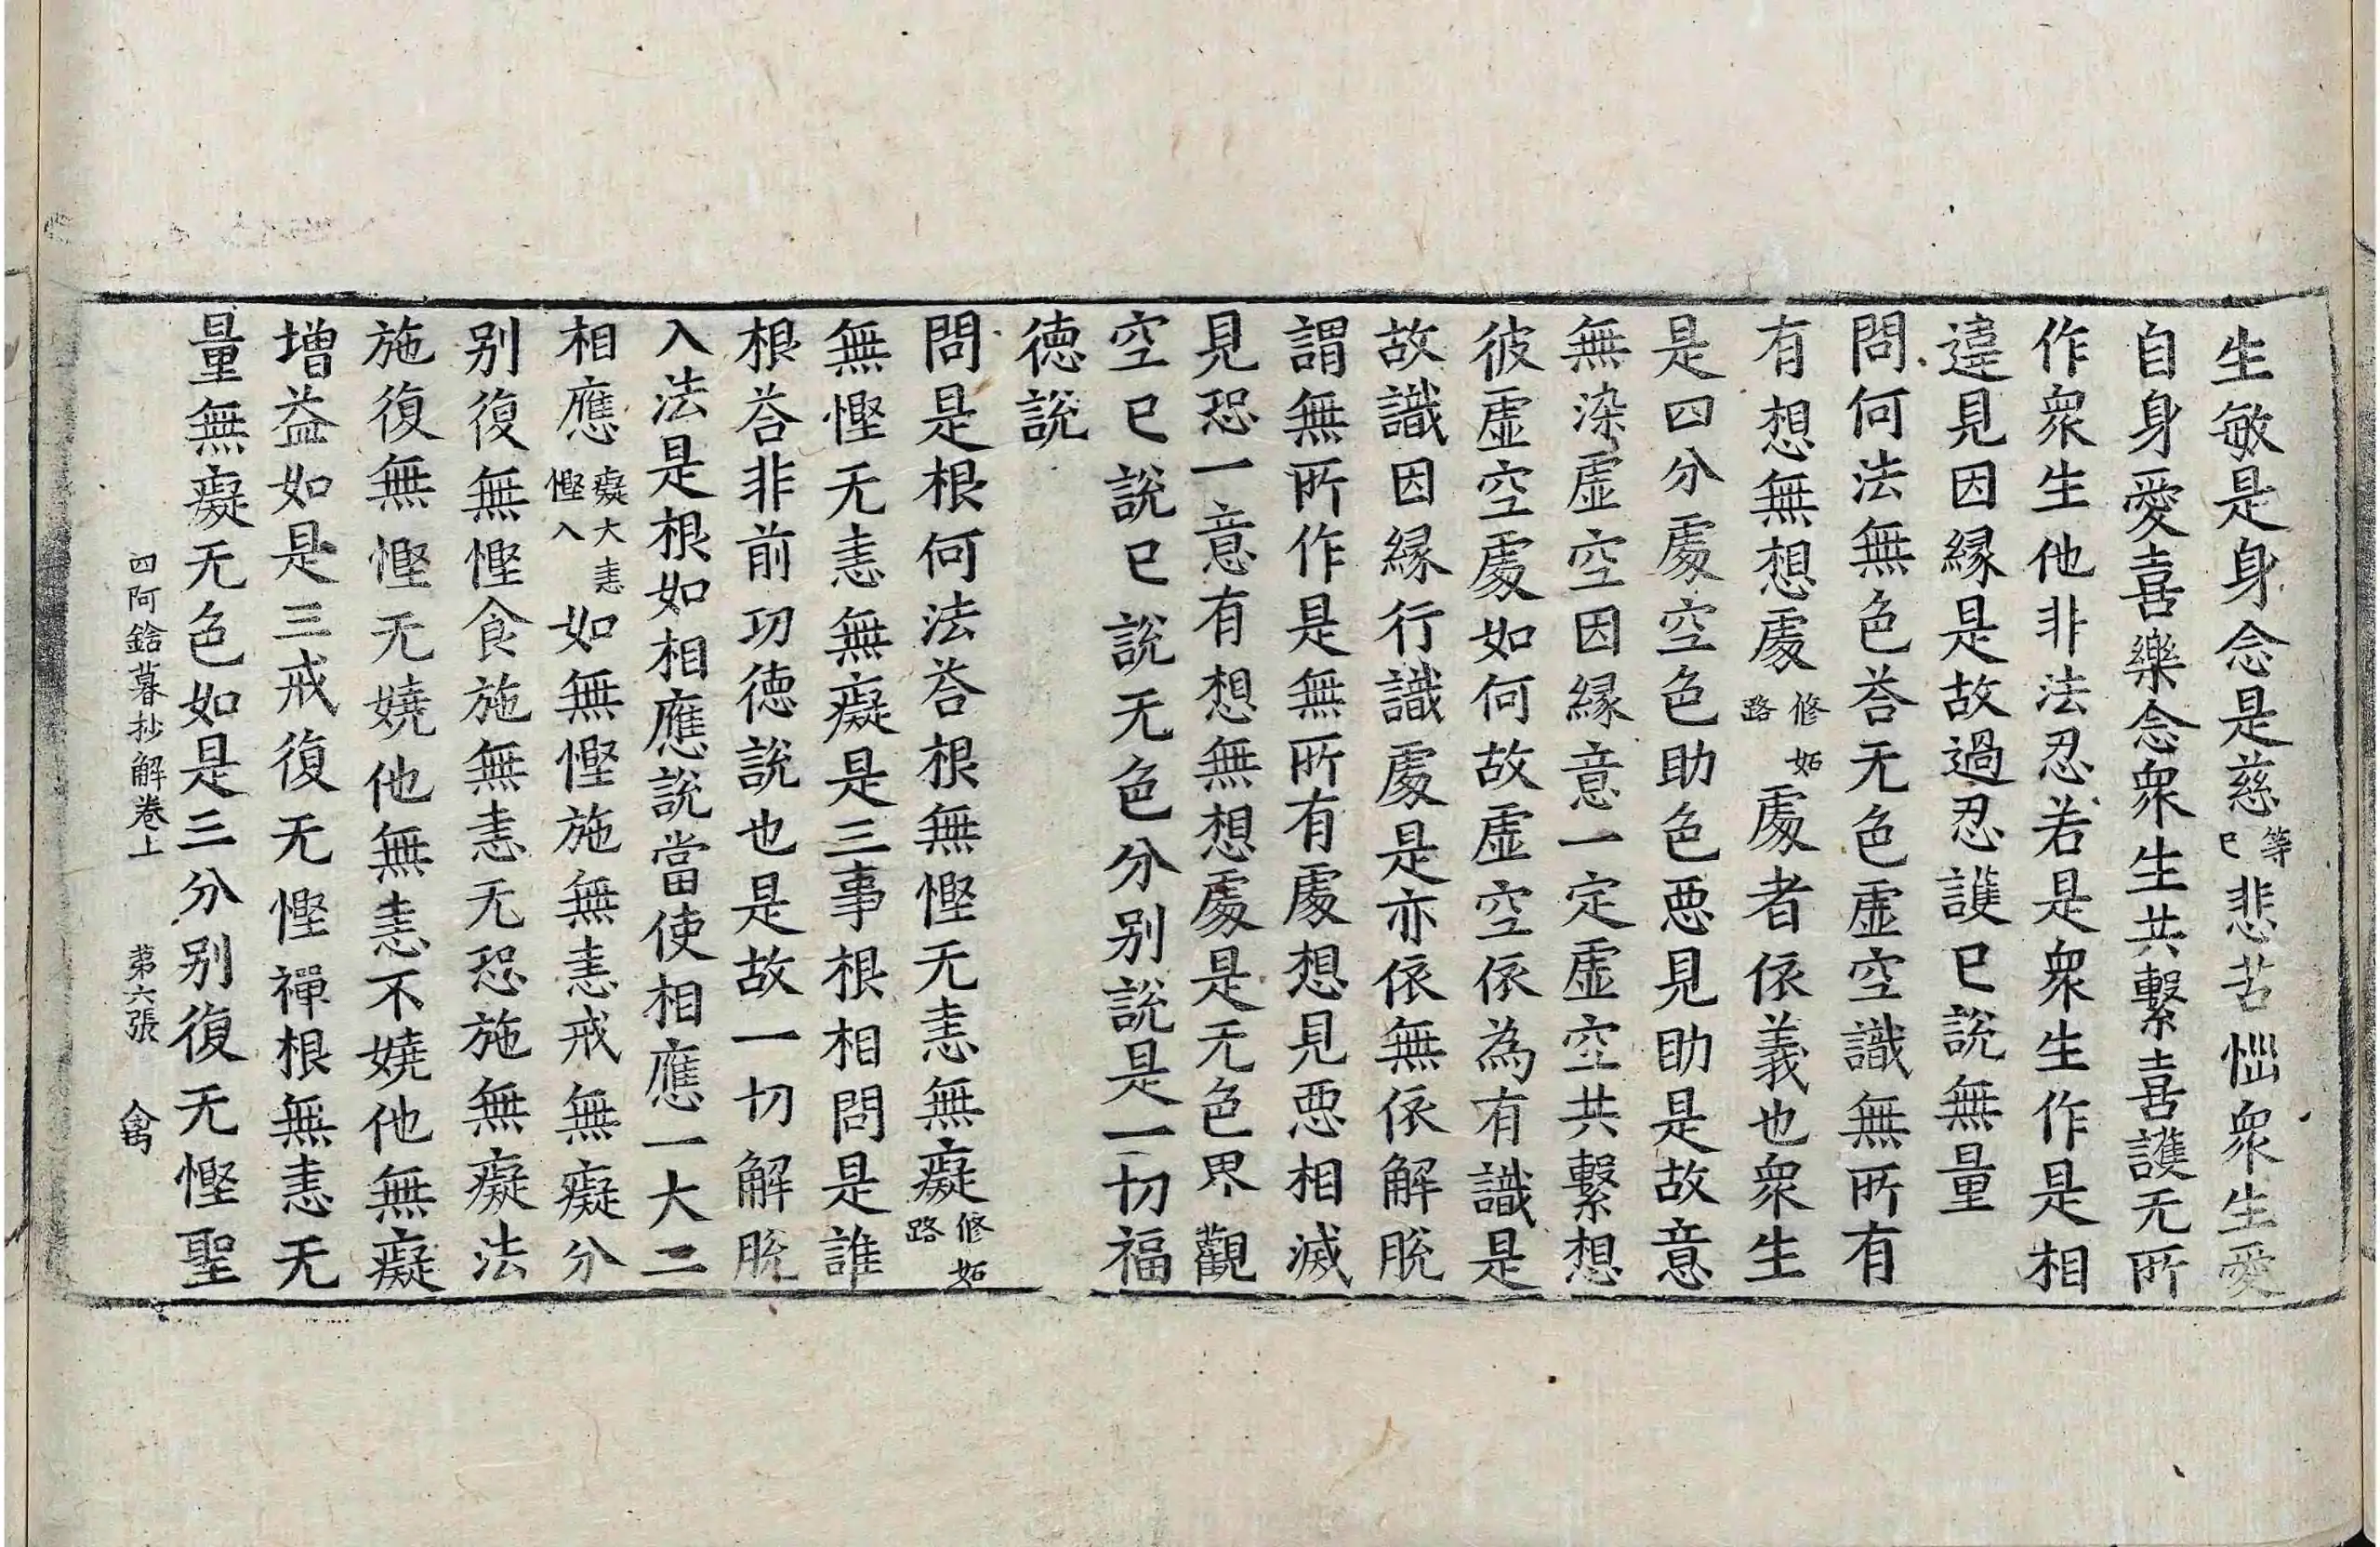 生敏是身念是慈等已悲苦惱衆生愛
自身愛喜樂念衆生共繫喜護无所
作衆生他非法忍若是衆生作是相
違見因緣是故過忍護已說無量
問何法無色荅无色虛空識無所有
有想無想處修妬路處者依義也衆生
是四分處空色助色惡見助是故意
無染虛空因緣意一定虛空共繫想
彼虛空處如何故虛空依為有識是
故識因緣行識處是亦依無依解脫
謂無所作是無所有處想見惡相滅
見恐一意有想無想處是无色界觀
空已說已說无色分別說是一切福
德說
問是根何法荅根無慳无恚無癡修妬路
無慳无恚無癡是三事根相問是誰
根荅非前功德說也是故一切解脫
入法是根如相應說當使相應一大二
相應癡大恚慳入如無慳施無恚戒無癡分
別復無慳食施無恚无恐施無癡法
施復無慳无嬈他無恚不嬈他無癡
增益如是三戒復无慳禪根無恚无
量無癡无色如是三分別復无慳聖
四阿鋡暮抄解卷上　第六張　禽